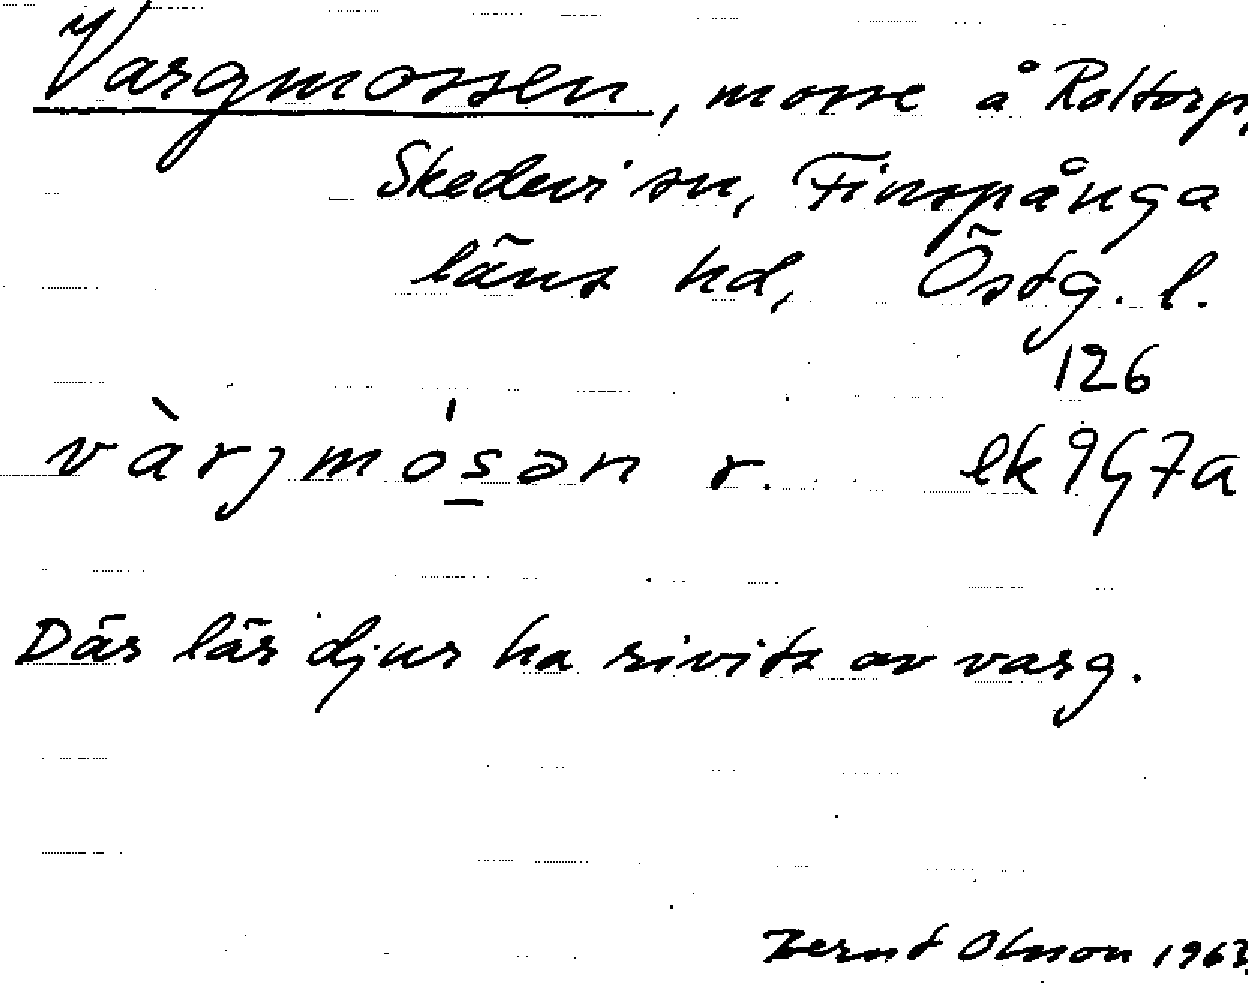 Vargmossen, mosse å Roltorp,
Skedevi sn, Finspånga
läns hd, Östg. l.
126
vàrjmósən r. ek 9G7a
Där lär djur ha rivits av varg.
Bernt Olsson 1963